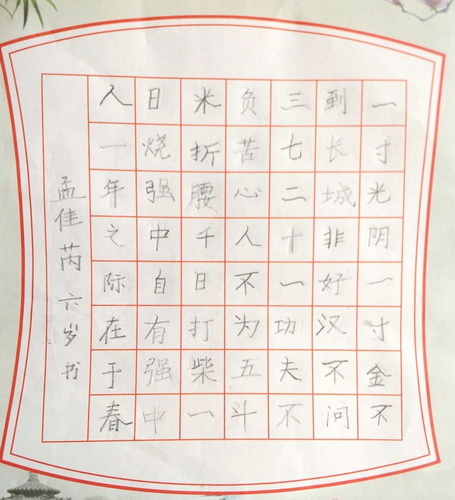 一寸光阴一寸金不
到长城非好汉不问
三七二十一功夫不
负苦心人不为五斗
米折腰千日打柴一
日烧强中自有强中
人一年之际在于春
孟佳芮六岁书